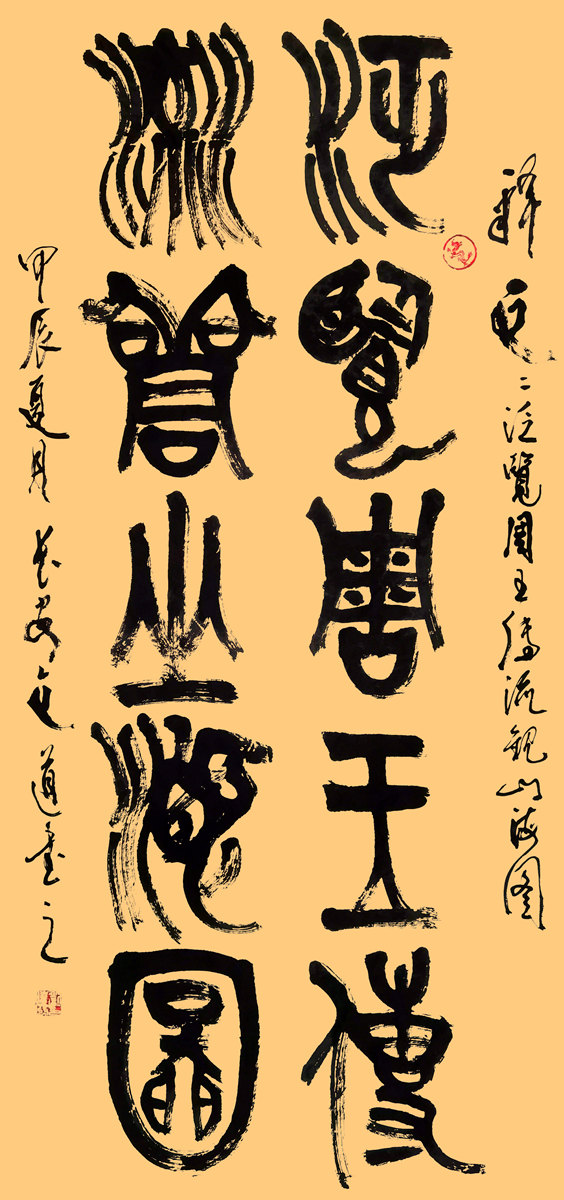 釋文：泛覽周王傳流觀山海图
泛覽周王傳
流觀山海圖
甲辰夏月長安文道書之